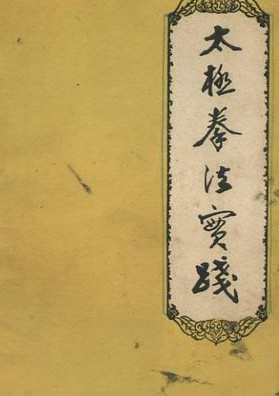 太極拳法實踐